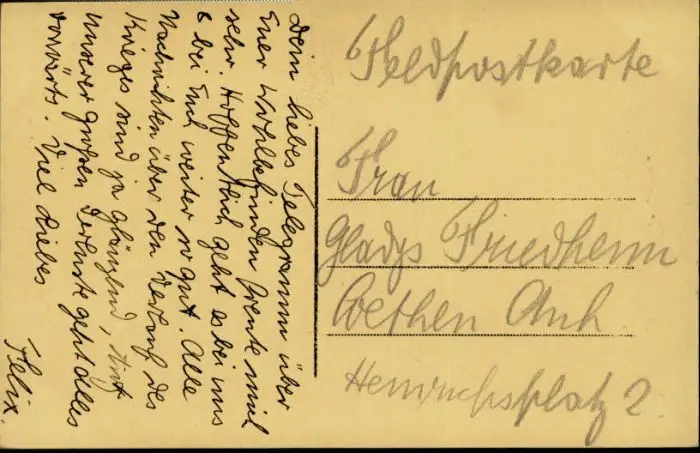 Dein liebes Telegramm über
Euer Wohlbefinden freute mich
sehr. Hoffentlich geht es bei uns
& bei Euch weiter so gut. Alle
Nachrichten über den Verlauf des
Krieges sind ja glänzend, trotz
unserer großen Verluste geht alles
vorwärts. Viel Liebes
Felix.
Feldpostkarte
Frau
Gladys Friedheim
Coethen Anh
Heinrichsplatz 2.